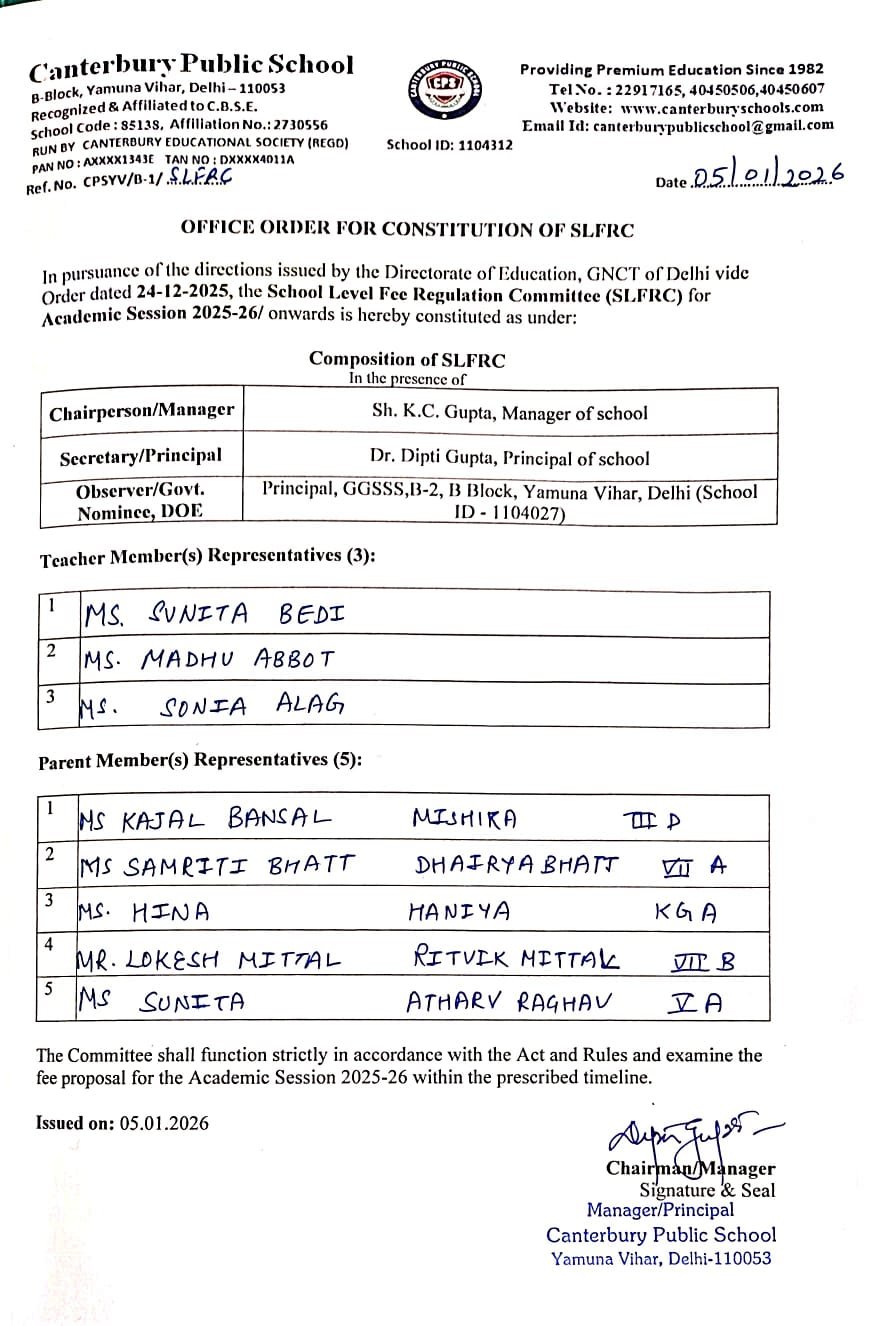 Canterbury Public School
B-Block, Yamuna Vihar, Delhi – 110053
Recognized & Affiliated to C.B.S.E.
School Code : 85138, Affiliation No.: 2730556
RUN BY CANTERBURY EDUCATIONAL SOCIETY (REGD)
PAN NO : AXXXX1343E TAN NO : DXXXX4011A
Ref. No. CPSYV/B-1/ SLFRC
CANTERBURY PUBLIC SCHOOL
CPS
School ID: 1104312
Providing Premium Education Since 1982
Tel No. : 22917165, 40450506,40450607
Website: www.canterburyschools.com
Email Id: canterburypublicschool@gmail.com
Date 05/01/2026
OFFICE ORDER FOR CONSTITUTION OF SLFRC
In pursuance of the directions issued by the Directorate of Education, GNCT of Delhi vide
Order dated 24-12-2025, the School Level Fee Regulation Committee (SLFRC) for
Academic Session 2025-26/ onwards is hereby constituted as under:
Composition of SLFRC
In the presence of
Chairperson/Manager Sh. K.C. Gupta, Manager of school
Secretary/Principal Dr. Dipti Gupta, Principal of school
Observer/Govt. Principal, GGSSS,B-2, B Block, Yamuna Vihar, Delhi (School
Nominee, DOE ID - 1104027)
Teacher Member(s) Representatives (3):
1 MS. SUNITA BEDI
2 MS. MADHU ABBOT
3 MS. SONIA ALAG
Parent Member(s) Representatives (5):
1 MS KAJAL BANSAL MISHIKA III D
2 MS SAMRITI BHATT DHAIRYA BHATT VII A
3 MS. HINA HANIYA KG A
4 MR. LOKESH MITTAL RITVIK MITTAL VII B
5 MS SUNITA ATHARV RAGHAV V A
The Committee shall function strictly in accordance with the Act and Rules and examine the
fee proposal for the Academic Session 2025-26 within the prescribed timeline.
Issued on: 05.01.2026
Chairman/Manager
Signature & Seal
Manager/Principal
Canterbury Public School
Yamuna Vihar, Delhi-110053